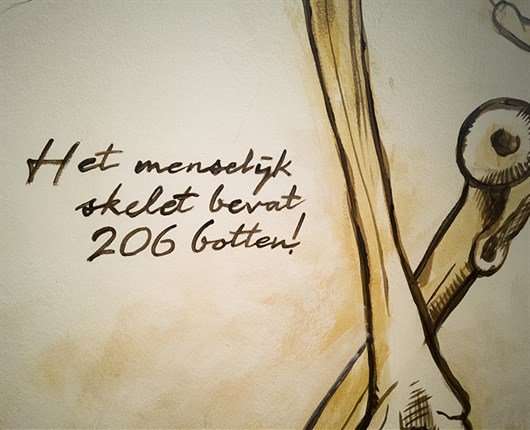 Het menselijk
skelet bevat
206 botten!